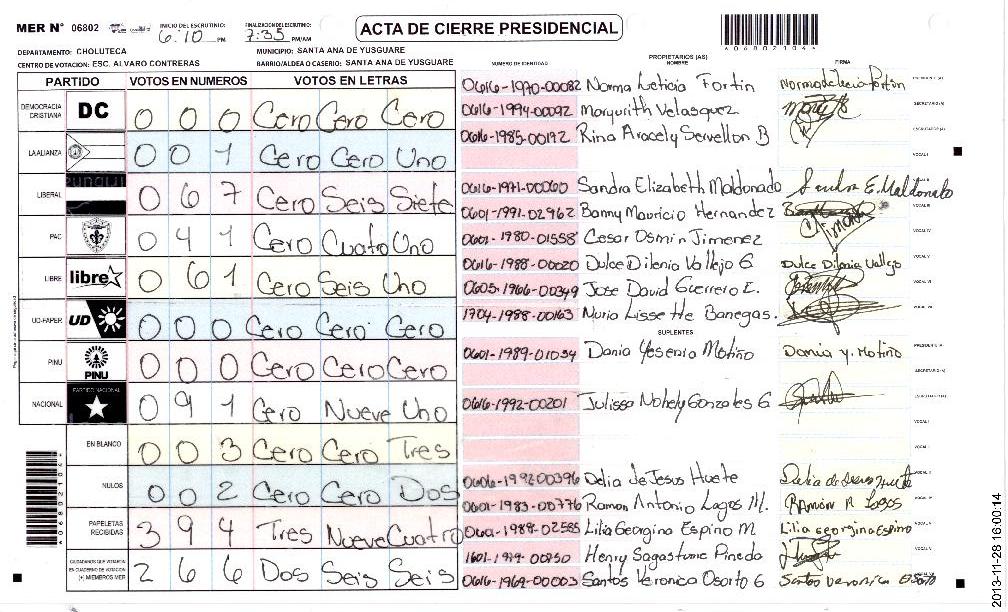 MER N° 06802
INICIO DEL ESCRUTINIO: 6:10 PM
FINALIZACION DEL ESCRUTINIO: 7:35 PM/AM
ACTA DE CIERRE PRESIDENCIAL
0 6 8 0 2 1 0 4 4
DEPARTAMENTO: CHOLUTECA
MUNICIPIO: SANTA ANA DE YUSGUARE
CENTRO DE VOTACION: ESC. ALVARO CONTRERAS
BARRIO/ALDEA O CASERIO: SANTA ANA DE YUSGUARE
PARTIDO VOTOS EN NUMEROS VOTOS EN LETRAS
DEMOCRACIA CRISTIANA DC 0 0 0 Cero Cero Cero
LA ALIANZA 0 0 1 Cero Cero Uno
LIBERAL 0 6 7 Cero Seis Siete
PAC 0 4 1 Cero Cuatro Uno
LIBRE libre 0 6 1 Cero Seis Uno
UD-FAPER UD 0 0 0 Cero Cero Cero
PINU PINU 0 0 0 Cero Cero Cero
NACIONAL PARTIDO NACIONAL 0 9 1 Cero Nueve Uno
EN BLANCO 0 0 3 Cero Cero Tres
NULOS 0 0 2 Cero Cero Dos
PAPELETAS RECIBIDAS 3 9 4 Tres Nueve Cuatro
CIUDADANOS QUE VOTARON EN CUADERNO DE VOTACION (+) MIEMBROS MER 2 6 6 Dos Seis Seis
PROPIETARIOS (AS)
NUMERO DE IDENTIDAD NOMBRE FIRMA
0616-1970-00082 Norma Leticia Fortin Norma Leticia Fortin
0616-1994-00092 Margarith Velasquez SECRETARIO(A)
0616-1985-00192 Rina Aracely Servellon B ESCRUTADOR (A)
VOCAL I
0616-1971-00060 Sandra Elizabeth Maldonado Sandra E. Maldonado
0601-1991-02962 Banny Mauricio Hernandez VOCAL III
0601-1980-01558 Cesar Osmin Jimenez VOCAL IV
0616-1988-00020 Dulce Dilenia Vallejo G. Dulce Dilenia Vallejo VOCAL V
0605-1966-00349 Jose David Guerrero E. VOCAL VI
1704-1988-00163 Nuria Lissethe Banegas. VOCAL VII
SUPLENTES
0601-1989-01034 Dania Yesenia Motiño Dania Y. Motiño PRESIDENTE
SECRETARIO (A)
0616-1992-00201 Julissa Nohely Gonzales G ESCRUTADOR (A)
VOCAL I
0606-1992-00396 Delia de Jesus Huete Delia de Jesus Huete
0601-1983-00776 Ramon Antonio Lagos M. Ramón A Lagos
0601-1989-02585 Lilia Georgina Espino M. Lilia Georgina Espino
Henry Sagastume Pineda
0616-1969-00003 Santos Veronica Osorto G Santos Veronica Osorto
2013-11-28 16:00:14